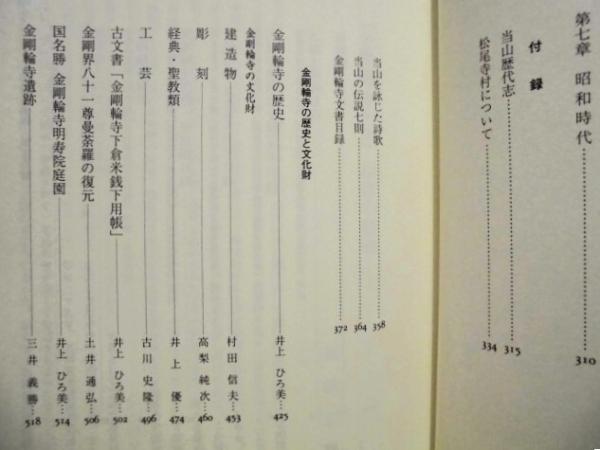 第七章 昭和時代 310
付録
当山歴代志 315
松尾寺村について 334
当山を詠じた詩歌 358
当山の伝説七則 364
金剛輪寺文書目録 372
金剛輪寺の歴史と文化財
金剛輪寺の歴史 井上ひろ美 425
金剛輪寺の文化財
建造物 村田信夫 453
彫刻 高梨純次 460
経典・聖教類 井上優 474
工芸 古川史隆 496
古文書「金剛輪寺下倉米銭下用帳」 井上ひろ美 502
金剛界八十一尊曼荼羅の復元 土井通弘 506
国名勝 金剛輪寺明寿院庭園 井上ひろ美 514
金剛輪寺遺跡 三井義勝 518